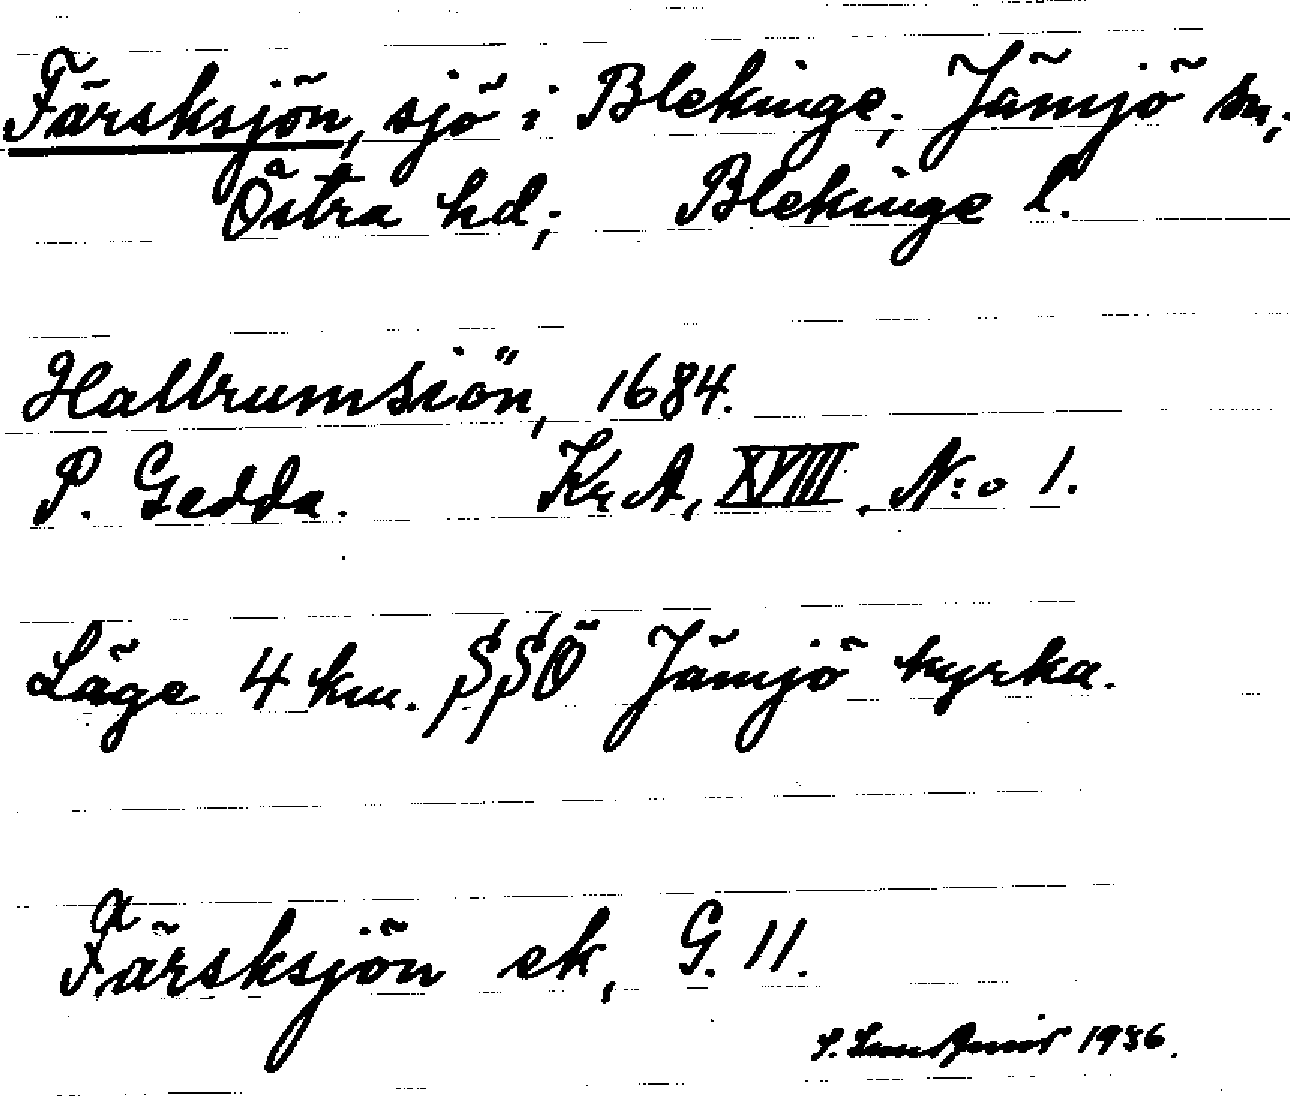 Färsksjön, sjö i Blekinge, Jämjö sn,
Östra hd, Blekinge l.
Hallrumsiön, 1684.
P. Gedda. Kr A, XVIII, N:o 1.
Läge 4 km. SSÖ Jämjö kyrka.
Färsksjön ek, G. 11.
1936.